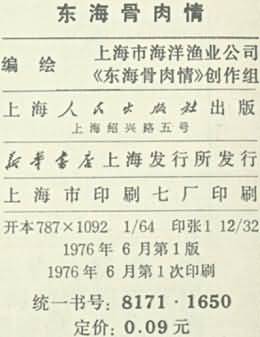 东海骨肉情
编绘 上海市海洋渔业公司
《东海骨肉情》创作组
上海人民出版社出版
上海绍兴路五号
新华书店上海发行所发行
上海市印刷七厂印刷
开本787×1092 1/64 印张1 12/32
1976年6月第1版
1976年6月第1次印刷
统一书号：8171·1650
定价：0.09元